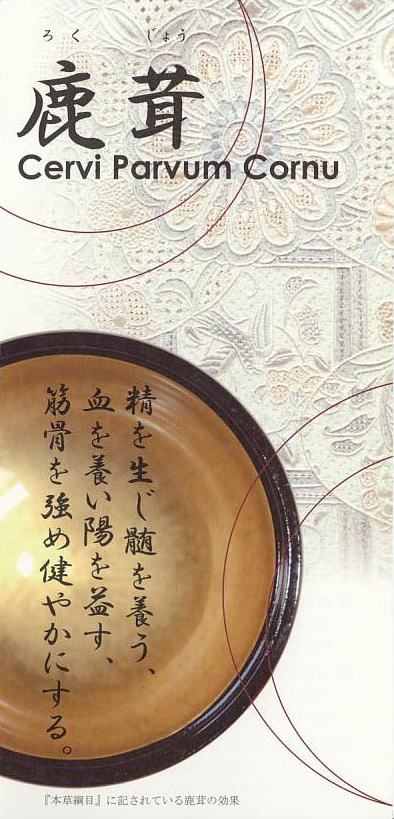 ろくじょう
鹿茸
Cervi Parvum Cornu
精を生じ髄を養う、
血を養い陽を益す、
筋骨を強め健やかにする。
『本草綱目』に記されている鹿茸の効果